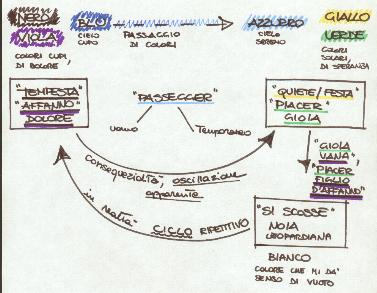 NERO
VIOLA
COLORI CUPI,
DI DOLORE
BLU
CIELO
CUPO
PASSAGGIO
DI COLORI
AZZURRO
CIELO
SERENO
GIALLO
VERDE
COLORI
SOLARI,
DI SPERANZA
"TEMPESTA"
"AFFANNO"
DOLORE
"PASSEGGER"
uomo
Temporaneo
"QUIETE/FESTA"
"PIACER"
GIOIA
consequenzialità, oscillazione
apparente
in realtà CICLO RIPETITIVO
"GIOIA
VANA"
"PIACER
FIGLIO
D'AFFANNO"
"SI SCOSSE"
NOIA
LEOPARDIANA
BIANCO
COLORE CHE MI DA'
SENSO DI VUOTO